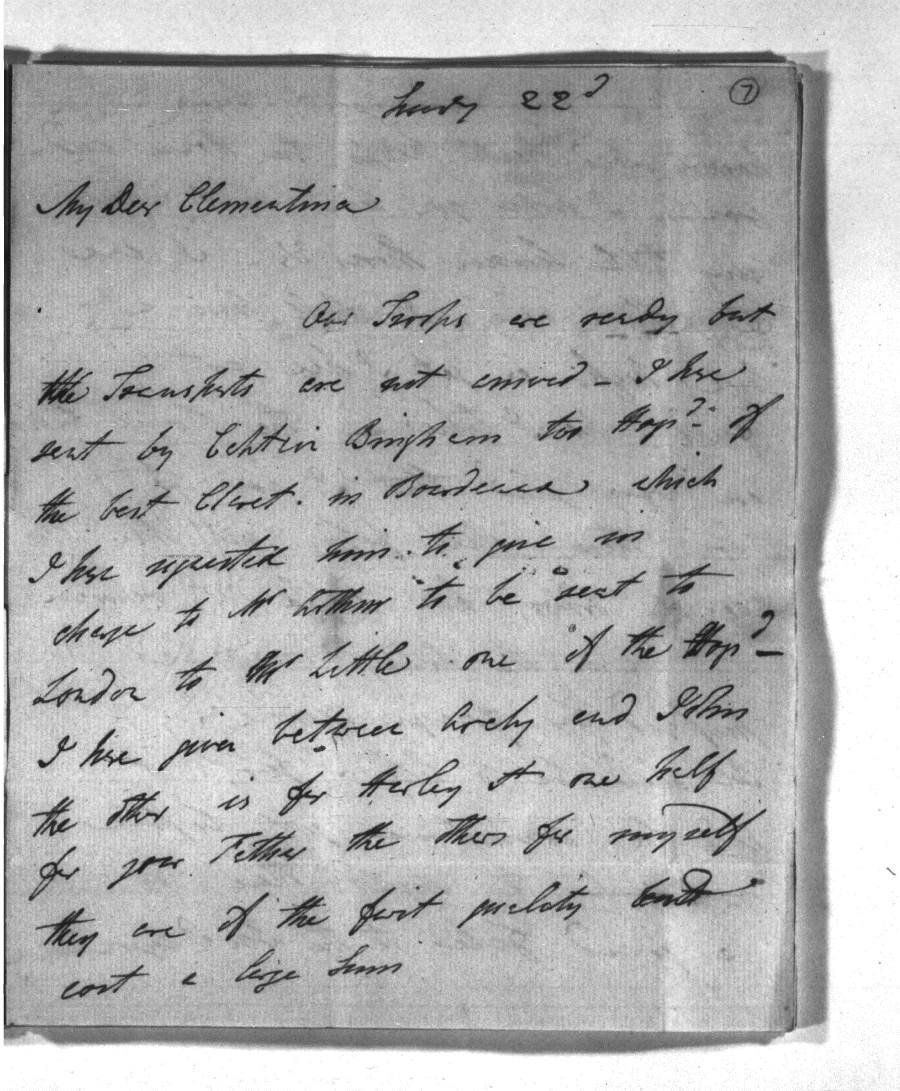 22d
7
My Dear Clementina
Our Troops are ready but
the Transports are not arrived - I have
sent by Captain Bingham two Hogds. of
the best Claret in Bourdeaux which
I have requested him to give in
charge to Mr to be sent to
London to Mr Little one of the Hogd -
I have given between Archy and John
the other is for Harley St one half
for your Father the others for myself
they are of the first quality and
cost a large Sum